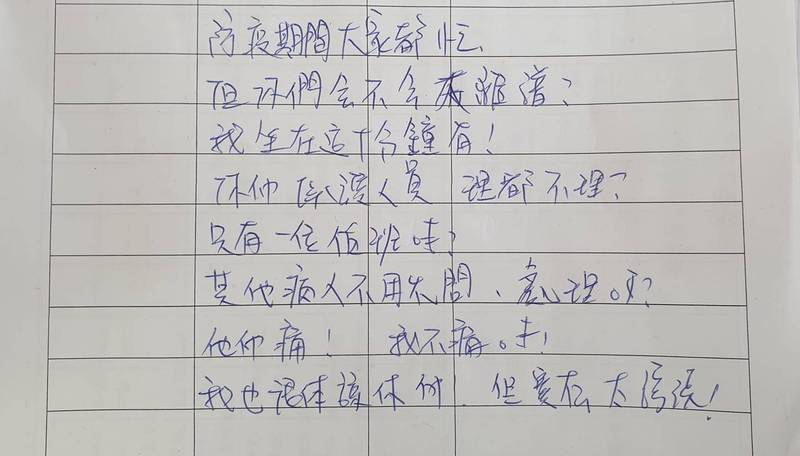 防疫期間大家都忙
但你們会不会太離譜?
我坐在這十分鐘有!
你们医護人員 理都不理?
只有一位值班哇?
其他病人不用先問、處理吗?
他们痛! 我不痛哇!
我也認体諒你们! 但實在太誇張!